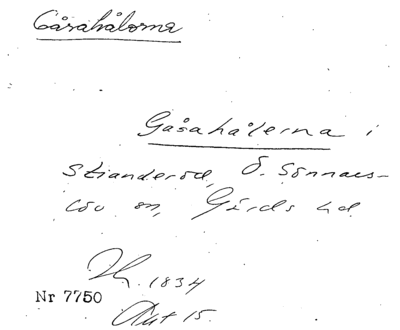 Gåsahålorna
Gåsahålerna i
Skianderöd, Ö. Sönnars-
löv sn, Gärds hd
1834
Nr 7750
Akt 15.